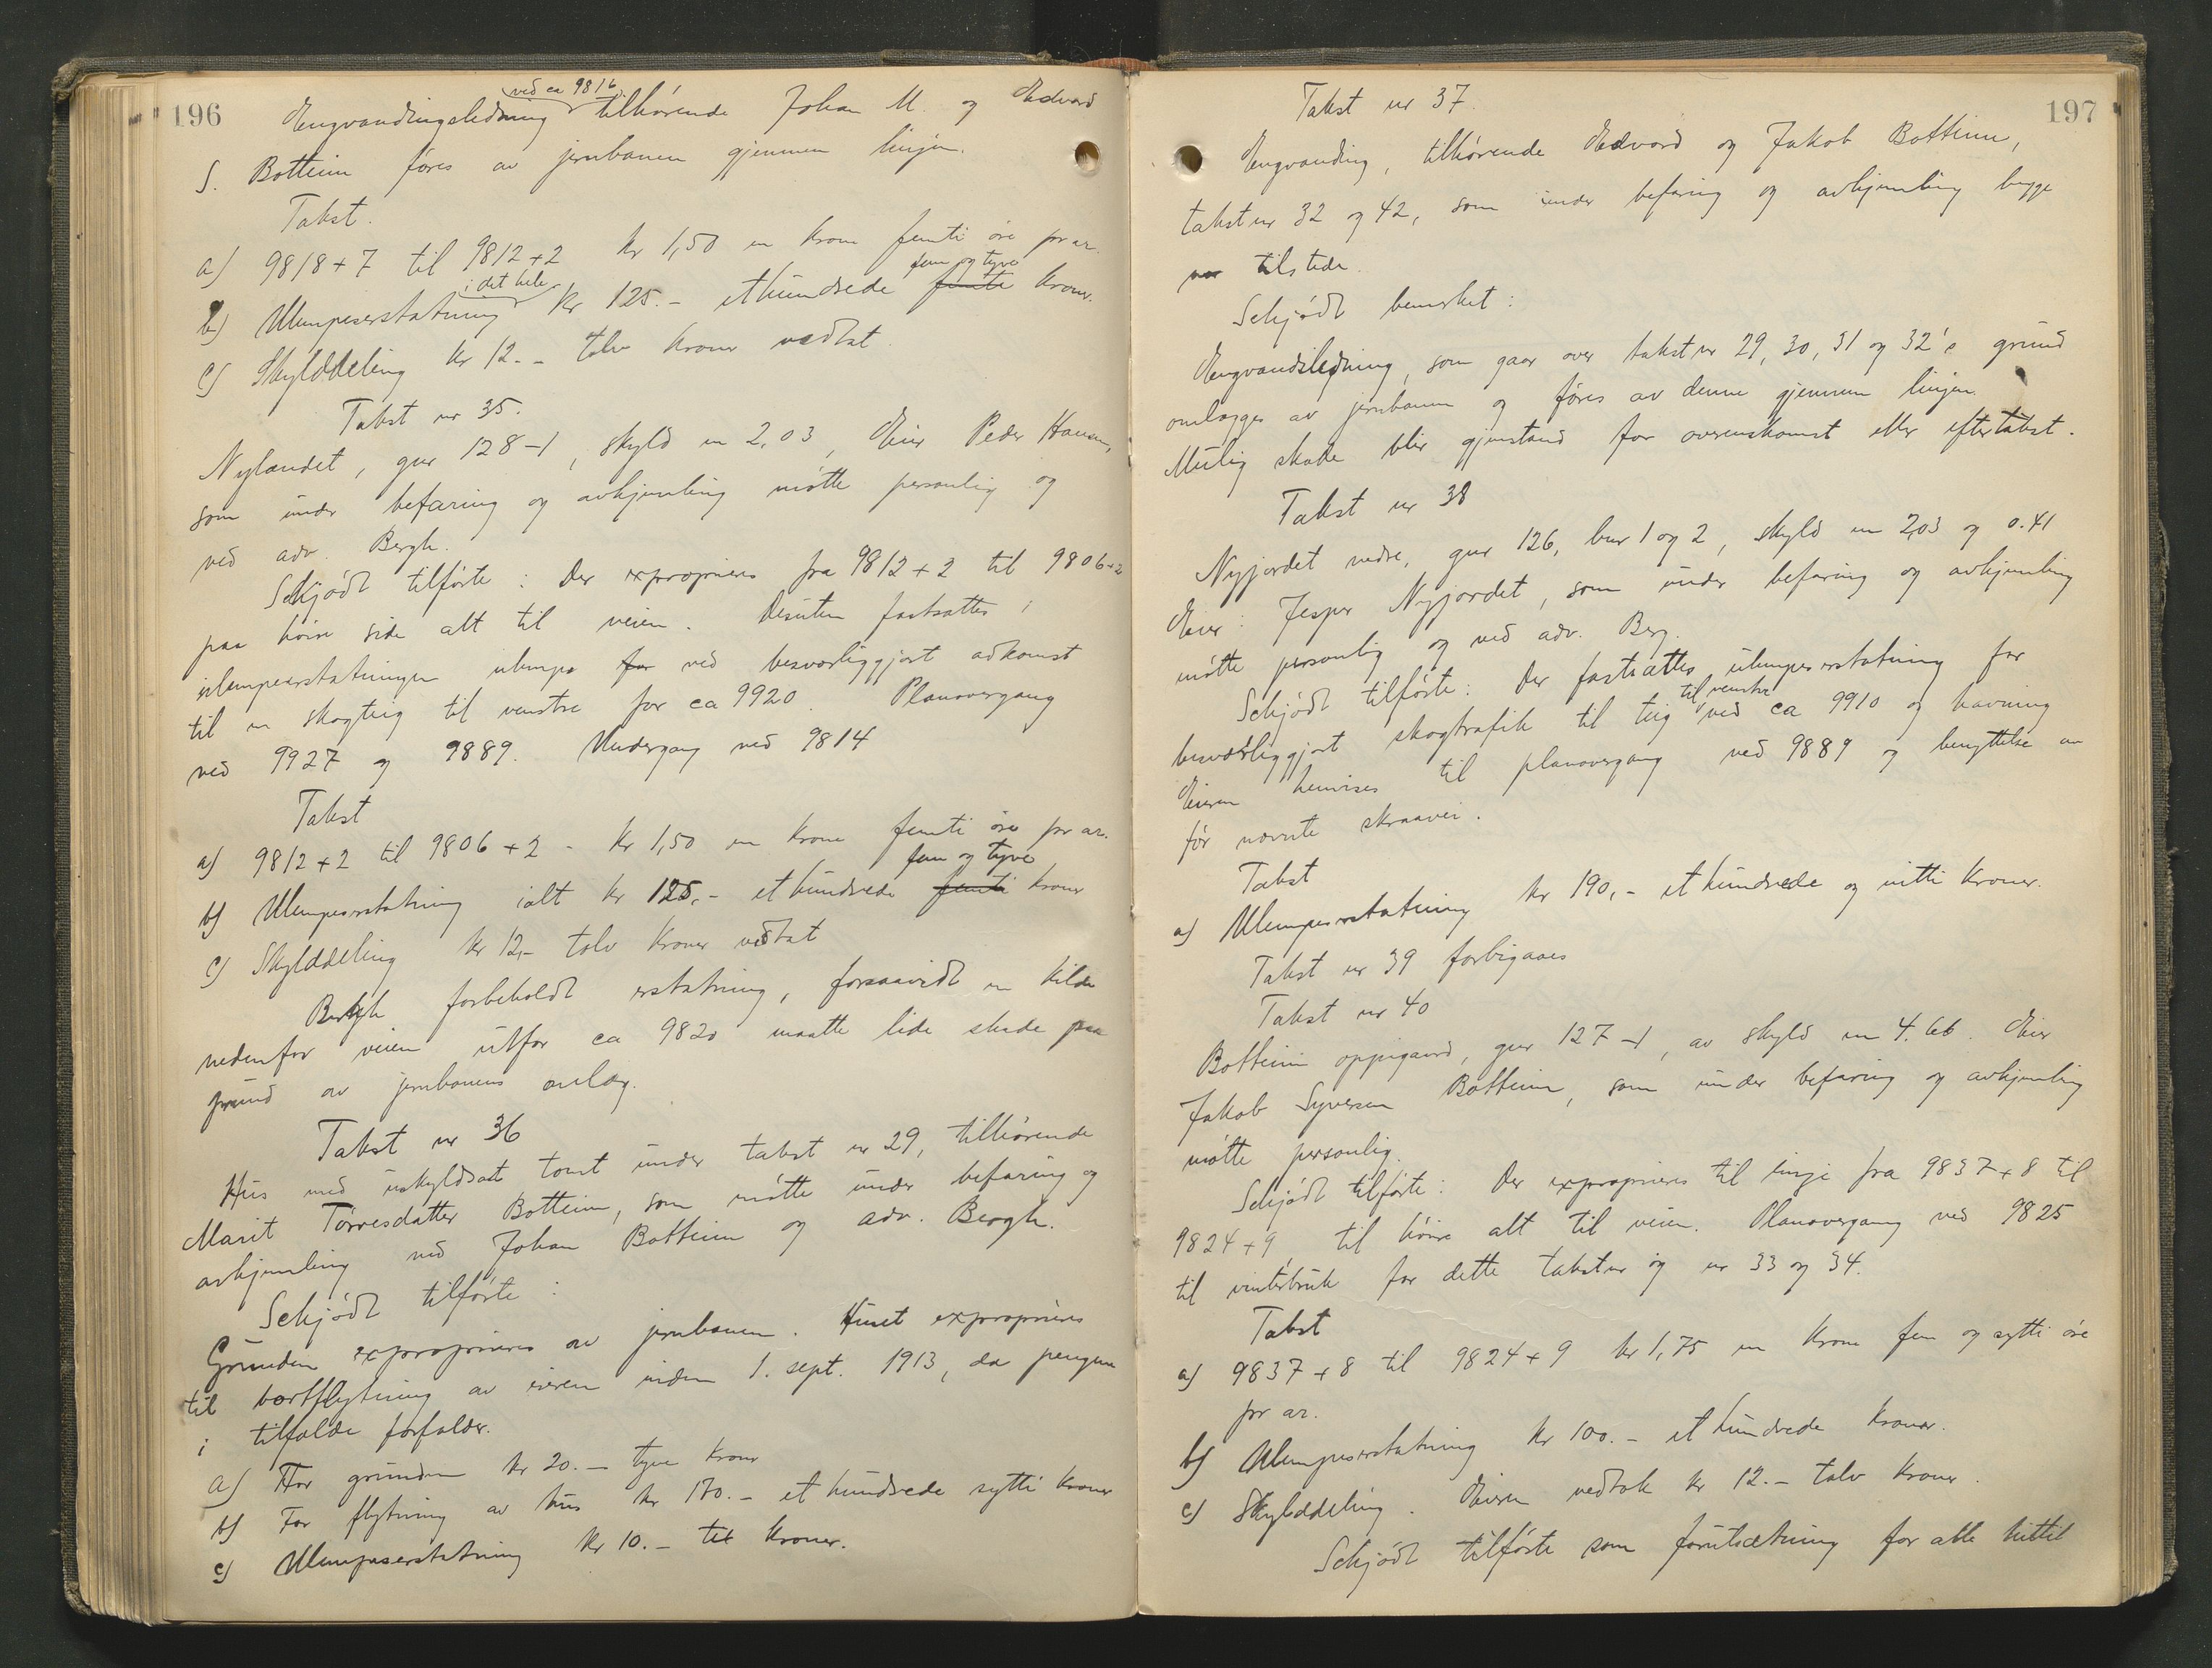 196
Engvandingsledning ved ca 9816 tilhørende Johan M. og Edvard
S. Botteim føres av jernbanen gjennem linjen.
Takst.
a) 9818+7 til 9812+2 kr 1,50 en krone femti øre pr ar.
b) Ulempeserstatning i det hele kr 125.- ethundrede femti fem og tyve kroner.
c) Skylddeling kr 12.- tolv kroner vedtat.
Takst nr 35.
Nylandet, gnr 128-1, skyld m 2,03, Eier Peder Hansen,
som under befaring og avhjemling møtte personlig og
ved adv. Bergh.
Schjødt tilførte: Der exproprieres fra 9812+2 til 9806+2
paa høire side alt til veien. Desuten fastsættes i
ulempeerstatningen ulempe for ved besværliggjort adkomst
til en skogteig til venstre for ca 9920. Planovergang
ved 9927 og 9889. Undergang ved 9814
Takst
a) 9812+2 til 9806+2 - kr 1,50 en krone femti øre pr ar.
b) Ulempeserstatning ialt kr 125.- et hundrede femti fem og tyve kroner
c) Skylddeling kr 12,- tolv kroner vedtat
Bergh forbeholdt erstatning, forsaavidt en kilde
nedenfor veien utfor ca 9820 maatte lide skade paa
grund av jernbanens anlæg.
Takst nr 36
Hus med uskyldsat tomt under takst nr 29, tilhørende
Marit Tørresdatter Botteim, som møtte under befaring og
avhjemling ved Johan Botteim og adv. Bergh.
Schjødt tilførte:
Grunden exproprieres av jernbanen. Huset exproprieres
til bortflytning av eieren inden 1. sept. 1913, da pengene
i tilfælde forfalder.
a) For grunden kr 20.- tyve kroner
b) For flytning av hus kr 170.- et hundrede sytti kroner
c) Ulempeserstatning kr 10.- ti kroner.
197
Takst nr 37.
Engvanding, tilhørende Edvard og Jakob Botteim,
takst nr 32 og 42, som under befaring og avhjemling begge
var tilstede.
Schjødt bemerket:
Engvandsledning, som gaar over takst nr 29, 30, 31 og 32's grund
omlægges av jernbanen og føres av denne gjennem linjen.
Mulig skade blir gjenstand for overenskomst eller eftertakst.
Takst nr 38
Nyjordet nedre, gnr 126, bnr 1 og 2, skyld m 2,03 og 0.41
Eier: Jesper Nyjordet, som under befaring og avhjemling
møtte personlig og ved adv. Berg.
Schjødt tilførte: Der fastsættes ulempeserstatning for
besværliggjort skogtrafik til teig til venstre ved ca 9910 og havning
Eieren henvises til planovergang ved 9889 og benyttelse av
før nævnte skraavei.
Takst
a) Ulempeserstatning kr 190,- et hundrede og nitti kroner.
Takst nr 39 forbigaaes
Takst nr 40
Botteim oppigaard, gnr 127-1, av skyld m 4.66. Eier
Jakob Syversen Botteim, som under befaring og avhjemling
møtte personlig.
Schjødt tilførte: Der exproprieres til linje fra 9837+8 til
9824+9, til høire alt til veien. Planovergang ved 9825
til vinterbruk for dette takstnr og nr 33 og 34.
Takst
a) 9837+8 til 9824+9 kr 1,75 en krone fem og sytti øre
pr ar.
b) Ulempeserstatning kr 100.- et hundrede kroner.
c) Skylddeling. Eieren vedtok kr 12.- tolv kroner.
Schjødt tilførte som forutsætning for alle hittil